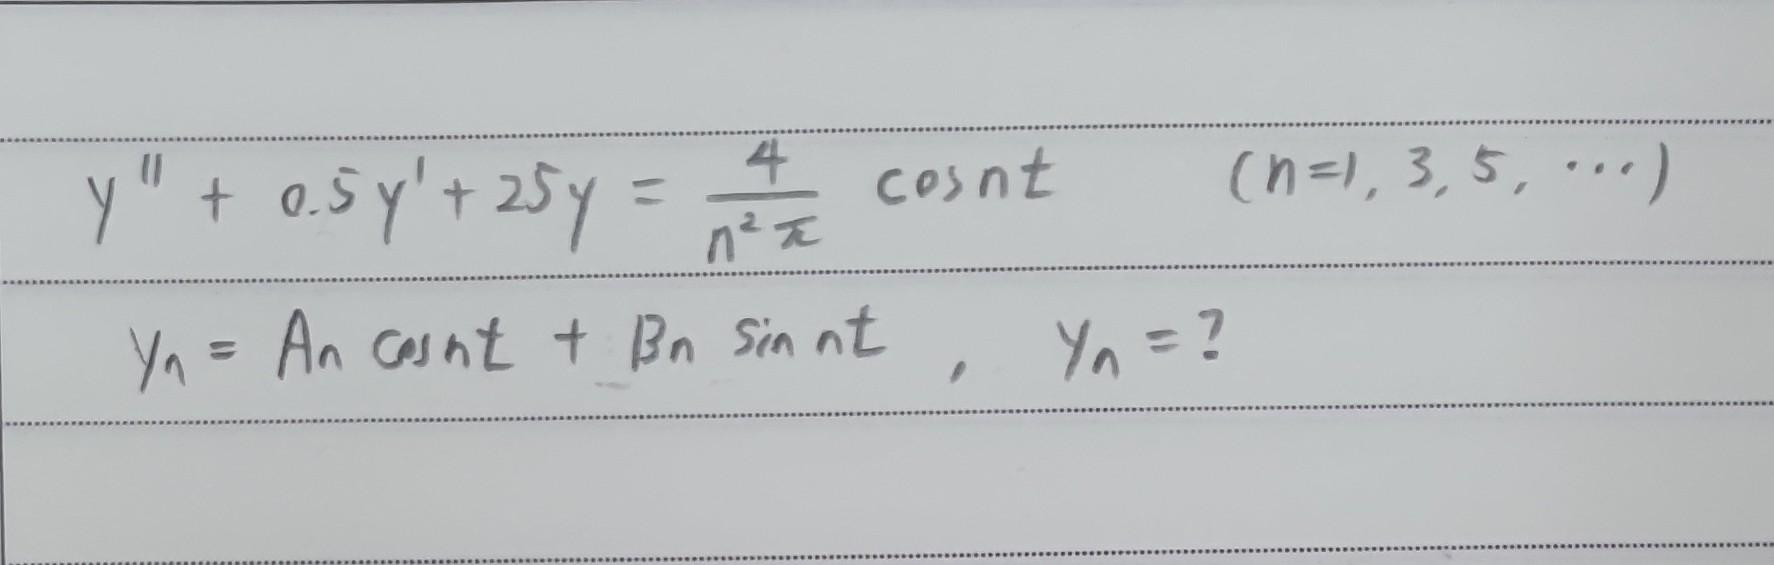 y'' + 0.5y' + 25y = \frac{4}{n^2 π} cosnt (n=1, 3, 5, ...)
yn = An cosnt + Bn sin nt , yn = ?